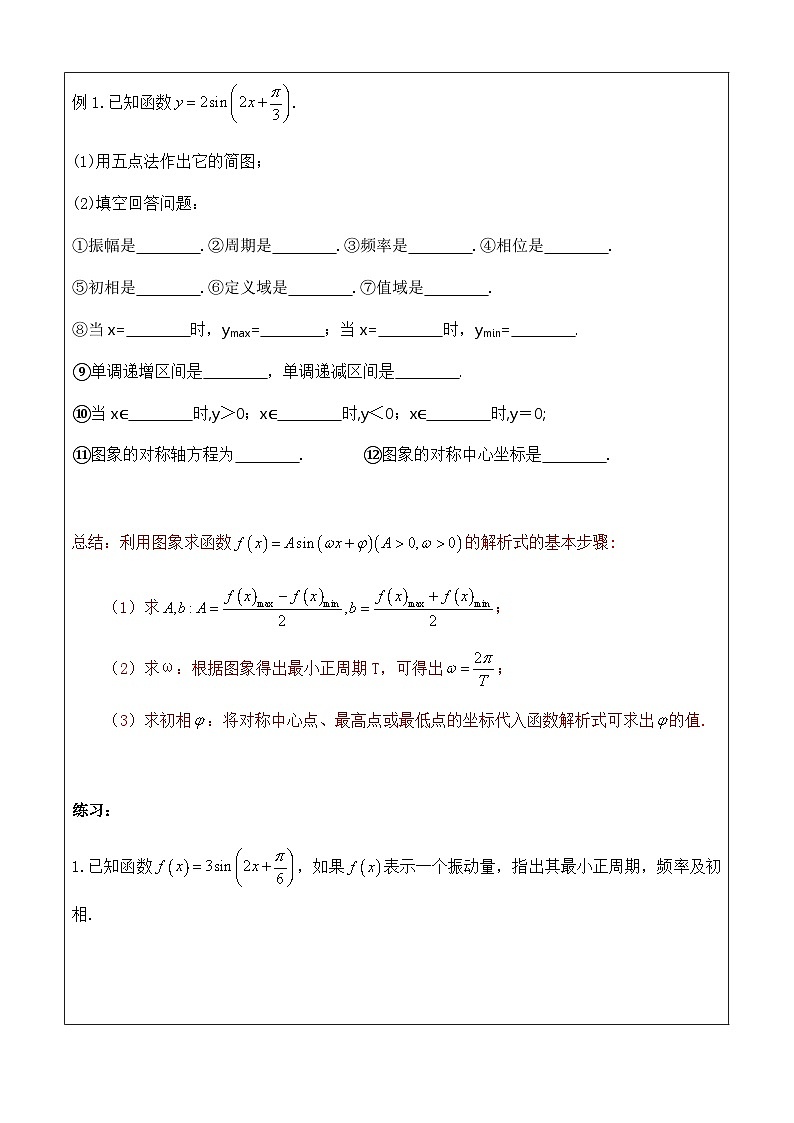 例1.已知函数y=2sin(2x+π/3).
(1)用五点法作出它的简图;
(2)填空回答问题:
①振幅是________.②周期是________.③频率是________.④相位是________.
⑤初相是________.⑥定义域是________.⑦值域是________.
⑧当x=________时,ymax=________;当x=________时,ymin=________.
⑨单调递增区间是________,单调递减区间是________.
⑩当x∈________时,y>0;x∈________时,y<0;x∈________时,y=0;
⑪图象的对称轴方程为________. ⑫图象的对称中心坐标是________.
总结:利用图象求函数f(x)=Asin(ωx+φ)(A>0,ω>0)的解析式的基本步骤:
(1)求A,b:A=(f(x)max−f(x)min)/2,b=(f(x)max+f(x)min)/2;
(2)求ω:根据图象得出最小正周期T,可得出ω=2π/T;
(3)求初相φ:将对称中心点、最高点或最低点的坐标代入函数解析式可求出φ的值.
练习:
1.已知函数f(x)=3sin(2x+π/6),如果f(x)表示一个振动量,指出其最小正周期,频率及初
相.